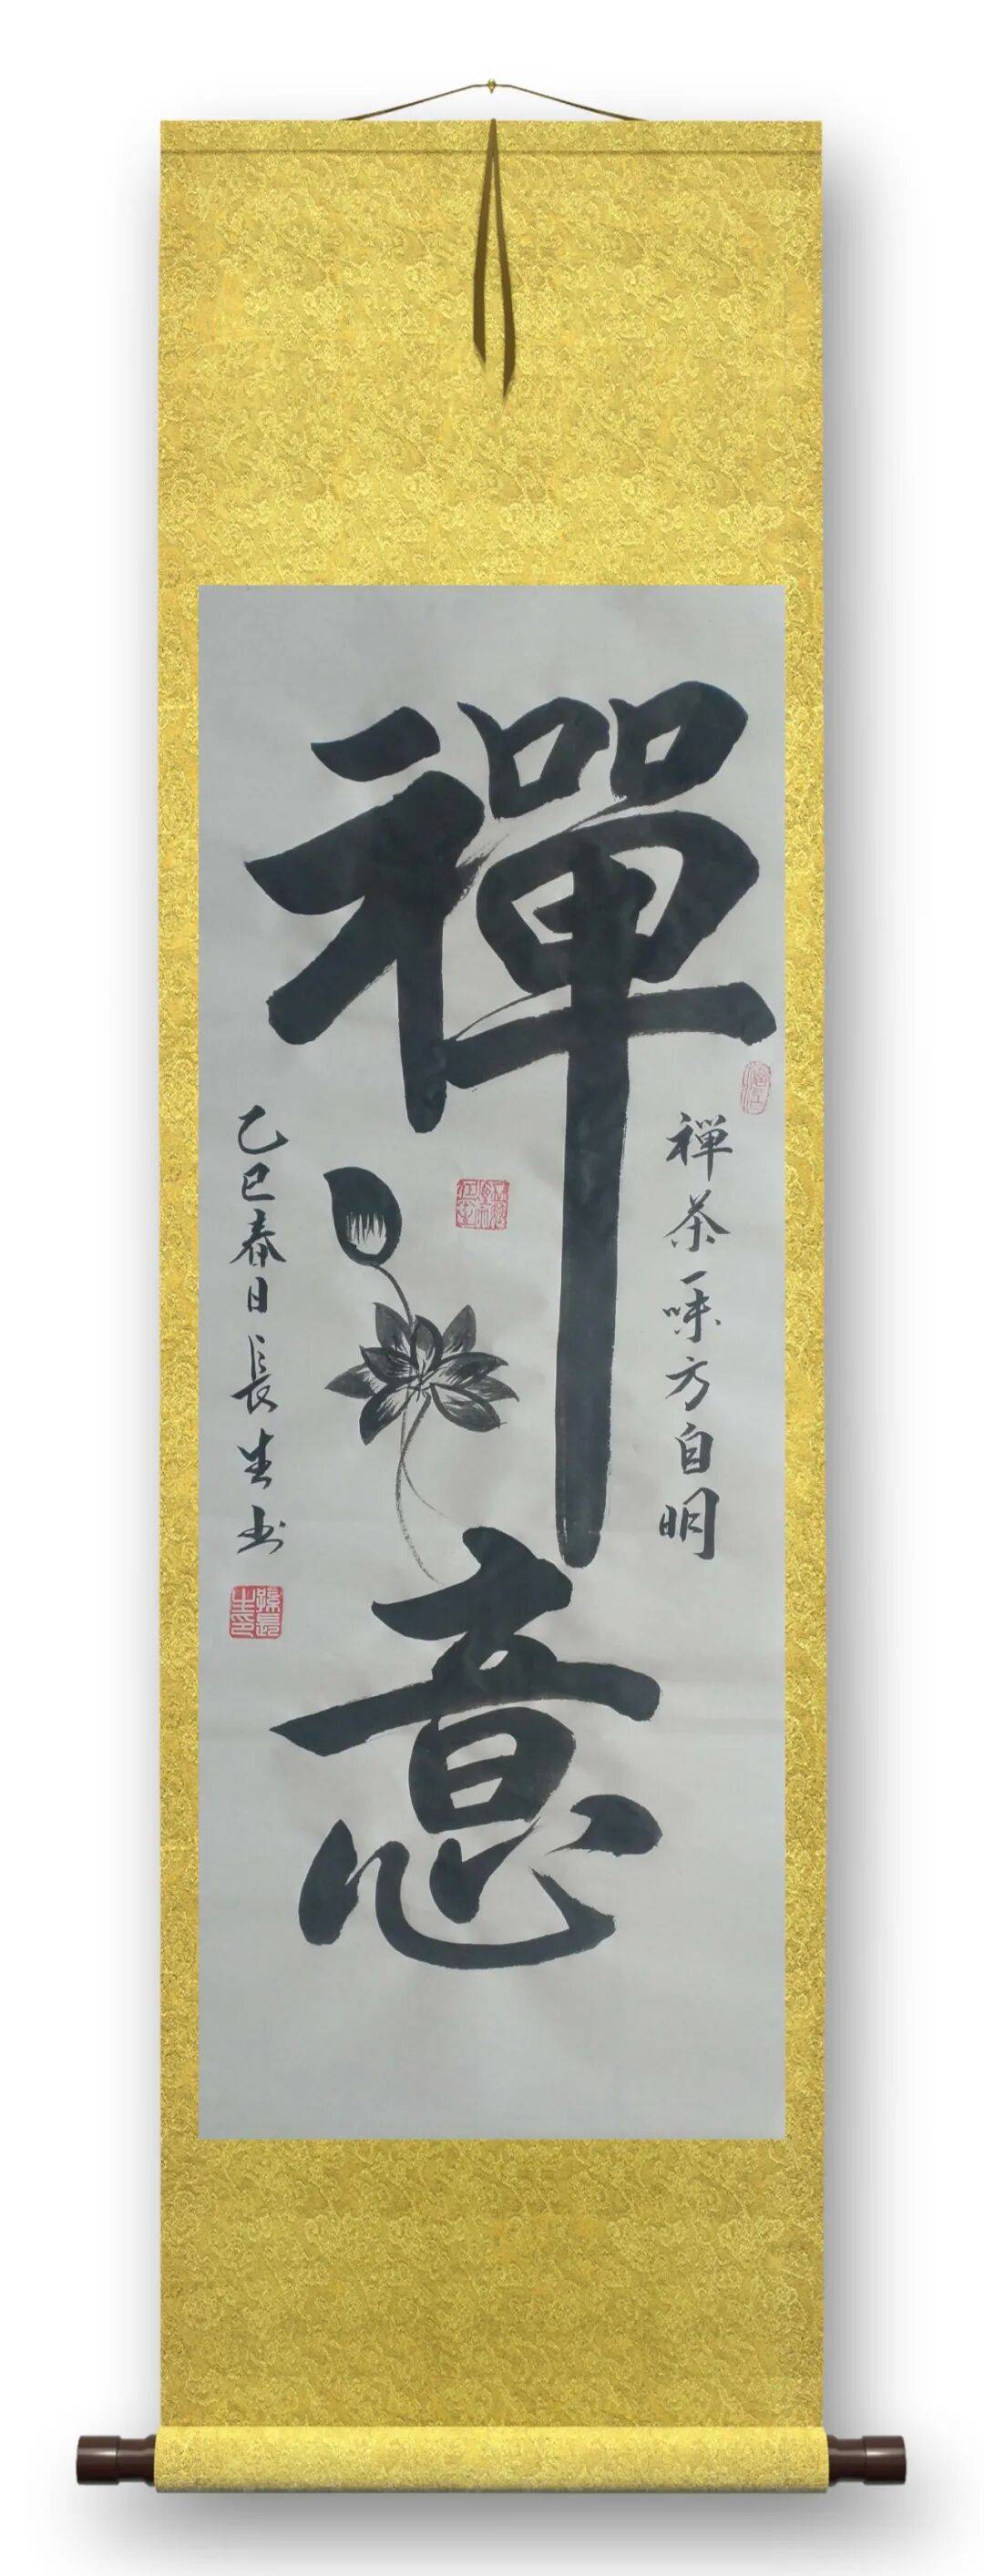 禪意
禅茶一味方自明
乙巳春日長生书
孫長生印